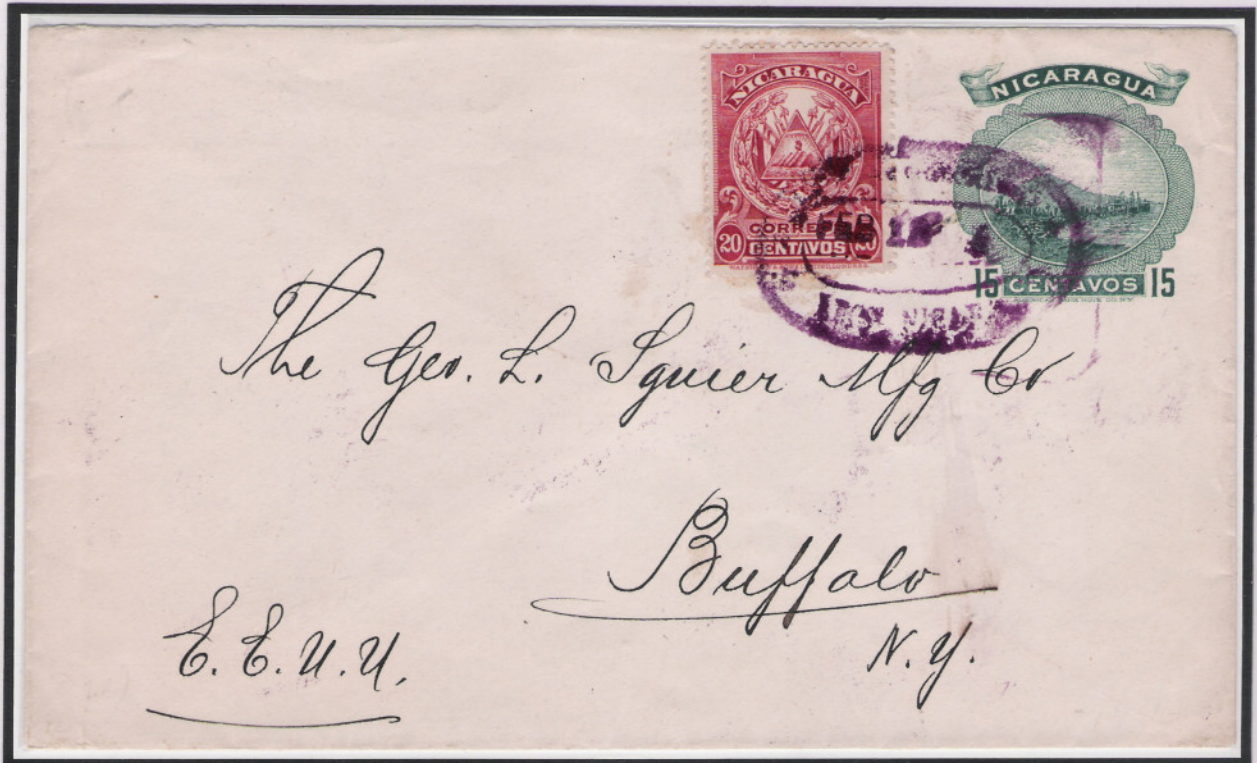 NICARAGUA
CORREOS
20 CENTAVOS 20
NICARAGUA
15 CENTAVOS 15
FEB 18
The Geo. L. Squier Mfg Co
Buffalo
N.Y.
E.E.U.U.